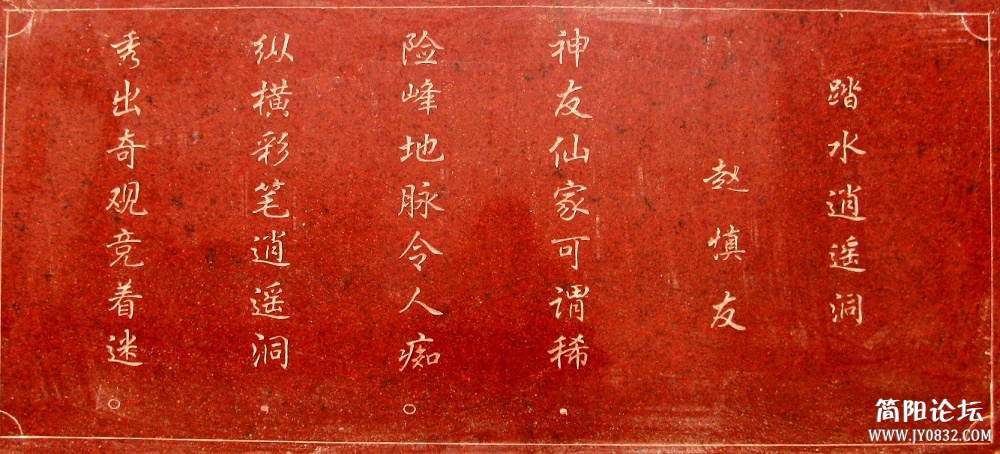 踏水逍遥洞
赵慎友
神友仙家可谓稀，
险峰地脉令人痴。
纵横彩笔逍遥洞，
秀出奇观竞着迷。
简阳论坛
WWW.JY0832.COM